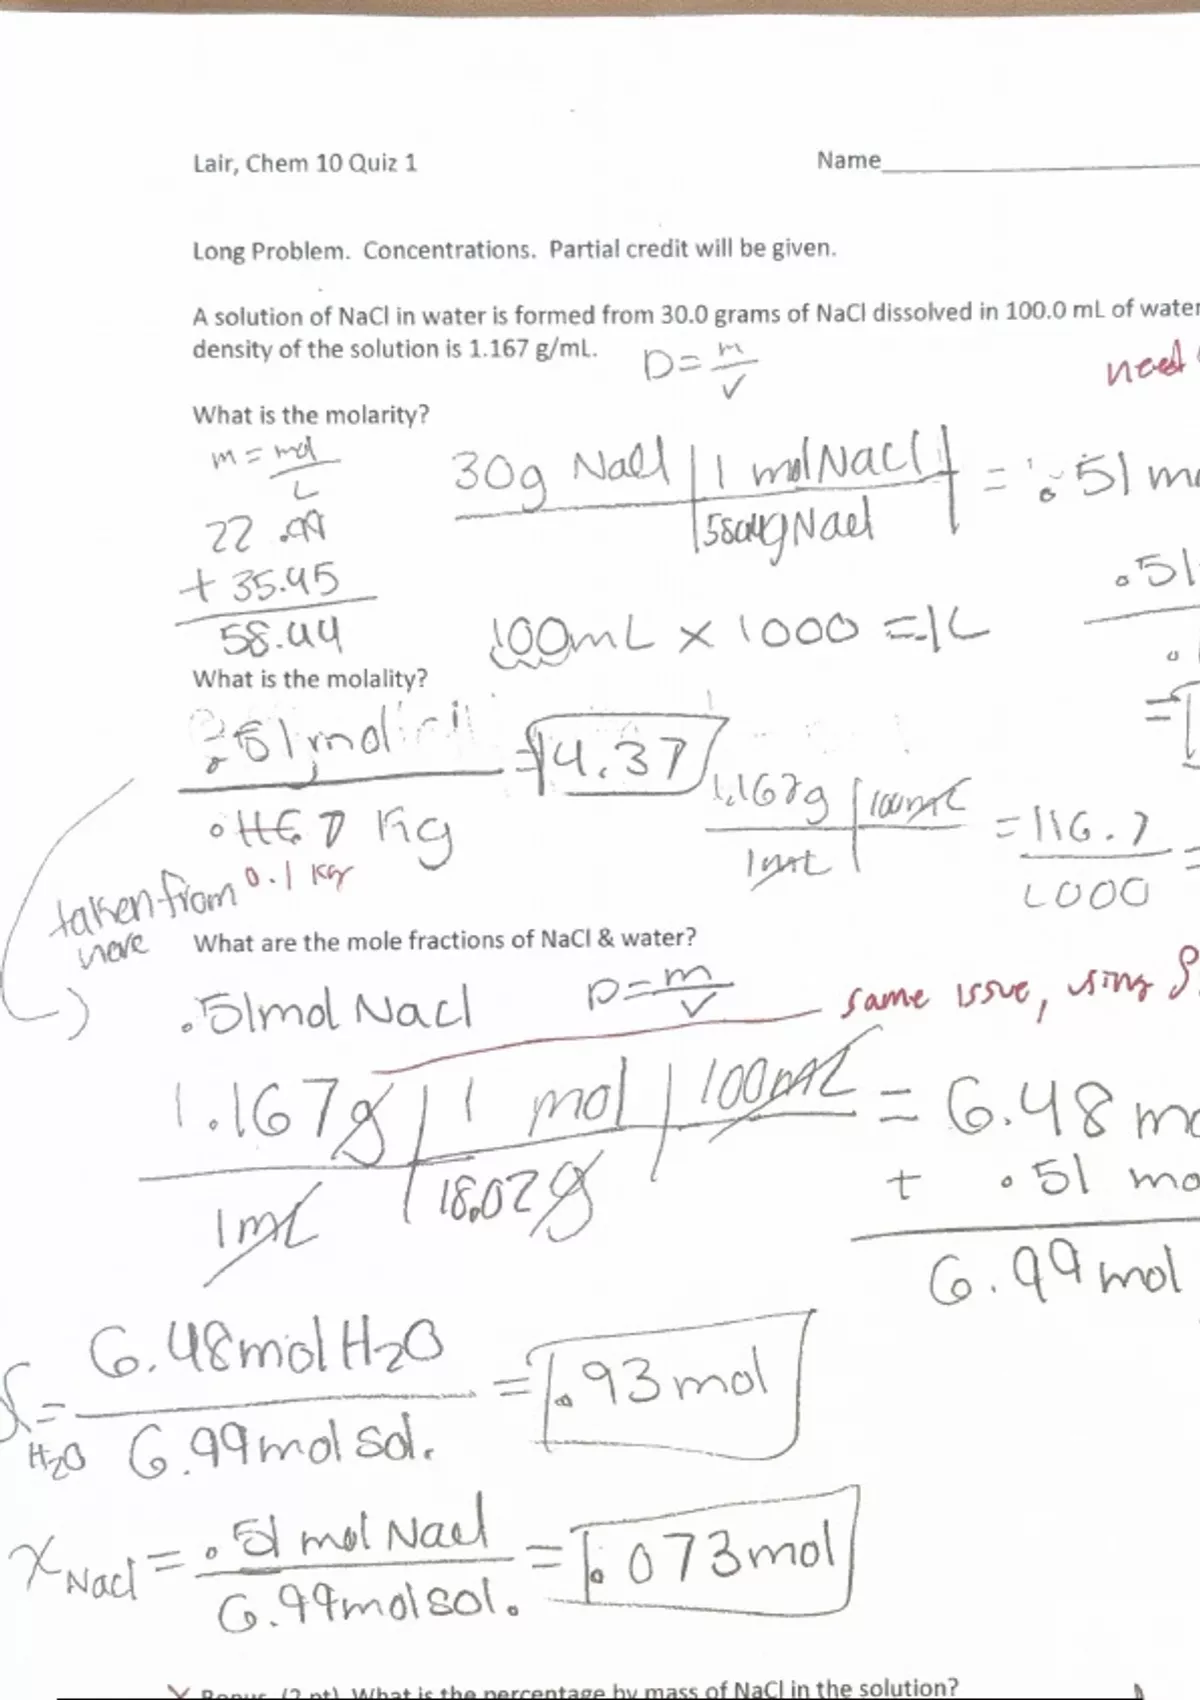 Lair, Chem 10 Quiz 1
Name
Long Problem. Concentrations. Partial credit will be given.
A solution of NaCl in water is formed from 30.0 grams of NaCl dissolved in 100.0 mL of water
density of the solution is 1.167 g/mL.
D = m / v
need
What is the molarity?
m = mol / L
30g NaCl | 1 mol NaCl
58.44g NaCl
= .51 m
22.99
+ 35.45
58.44
.51
100mL x 1000 = .1L
What is the molality?
.51 mol
.1167 Kg
= 4.37
1.167g | 100mL
1mL
= 116.7
1000
=
0.1 Kg
taken from
here
What are the mole fractions of NaCl & water?
.51mol NaCl
D = m / v
same issue, using
1.167g | 1 mol | 100mL
1mL | 18.02g
= 6.48 mo
+ .51 mo
6.99 mol
H2O
6.48mol H2O
6.99mol sol.
= .93mol
XNaCl = .51 mol NaCl
6.99mol sol.
= .073mol
Bonus (2 pt) What is the percentage by mass of NaCl in the solution?